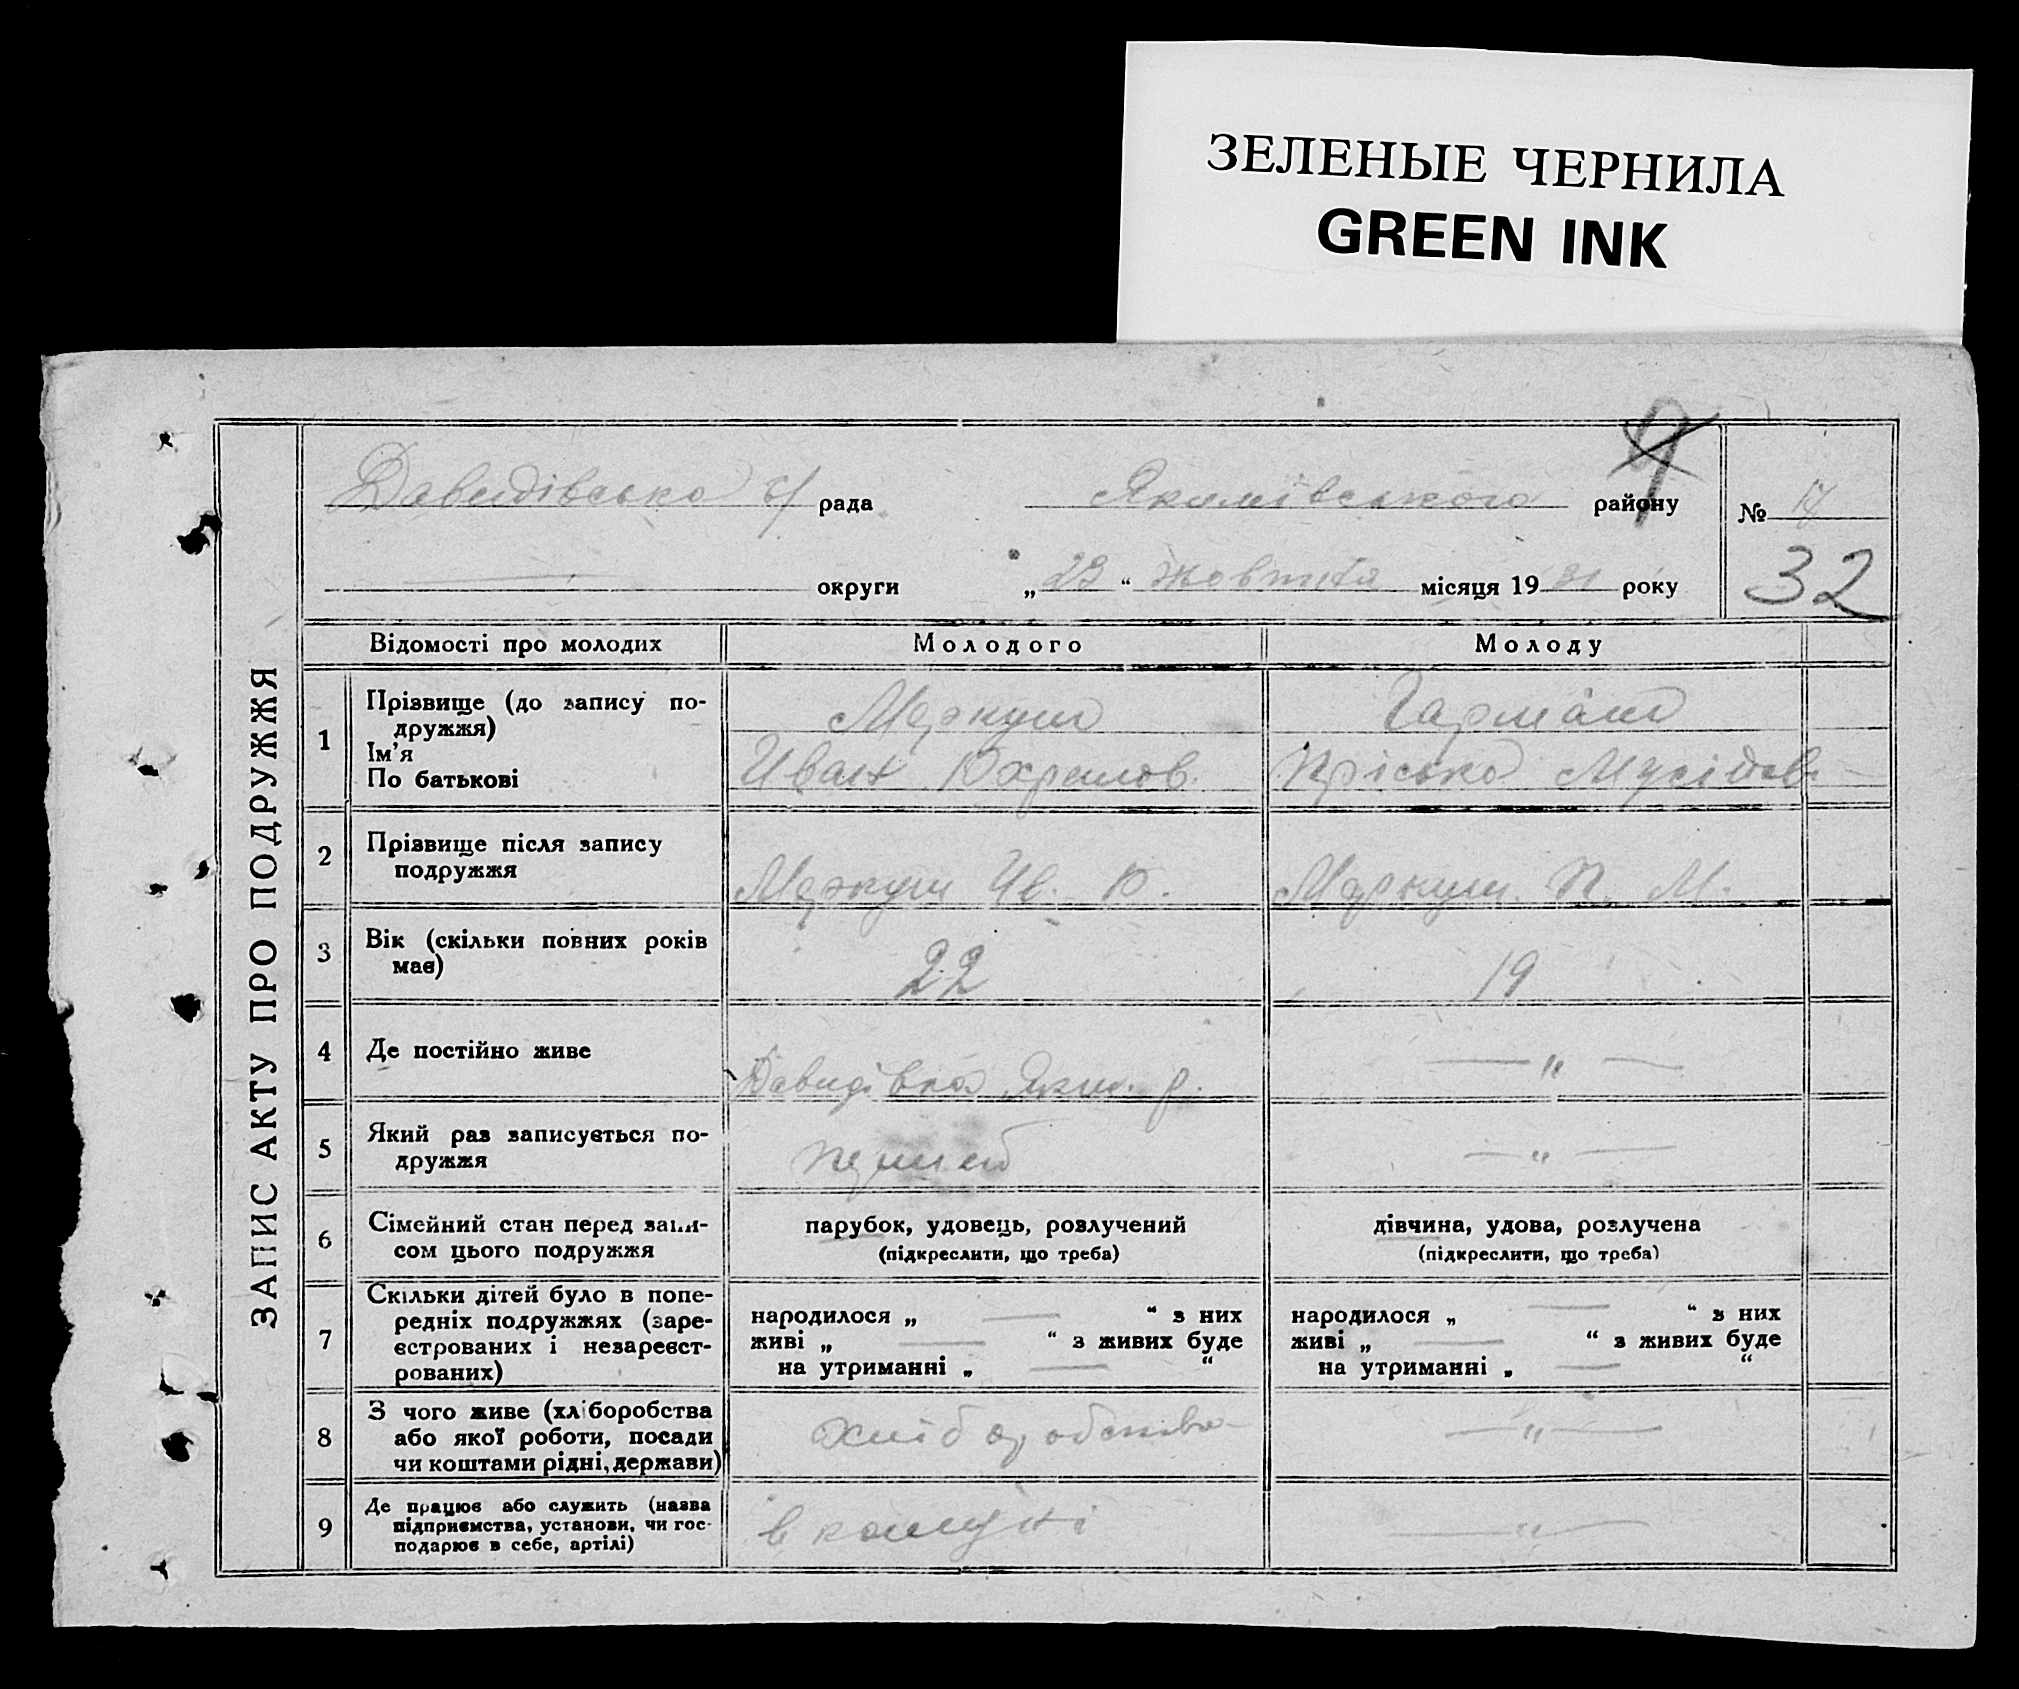 ЗЕЛЕНЫЕ ЧЕРНИЛА
GREEN INK
9
Давидівська с/ рада Якимівського району № 17
округи „ 23 “ жовтня місяця 19 31 року
32
ЗАПИС АКТУ ПРО ПОДРУЖЖЯ
Відомості про молодих Молодого Молоду
1 Прізвище (до запису по-
дружжя) Меркуш
Ім’я
По батькові Иван Пріська
2 Прізвище після запису
подружжя Меркуш Ив. Меркуш П. М.
3 Вік (скільки повних років
має) 22 19
4 Де постійно живе Давидівка Яким. р. — „ —
5 Який раз записується по-
дружжя — „ —
6 Сімейний стан перед запи-
сом цього подружжя
парубок, удовець, розлучений
(підкреслити, що треба)
дівчина, удова, розлучена
(підкреслити, що треба)
7 Скільки дітей було в попе-
редніх подружжях (заре-
єстрованих і незареєст-
рованих)
народилося „ — “ з них
живі „ — “ з живих буде
на утриманні „ — “
народилося „ — “ з них
живі „ — “ з живих буде
на утриманні „ — “
8 З чого живе (хліборобства
або якої роботи, посади
чи коштами рідні, держави)
хліборобство — „ —
9 Де працює або служить (назва
підприємства, установи, чи гос-
подарює в себе, артілі)
в комуні — „ —